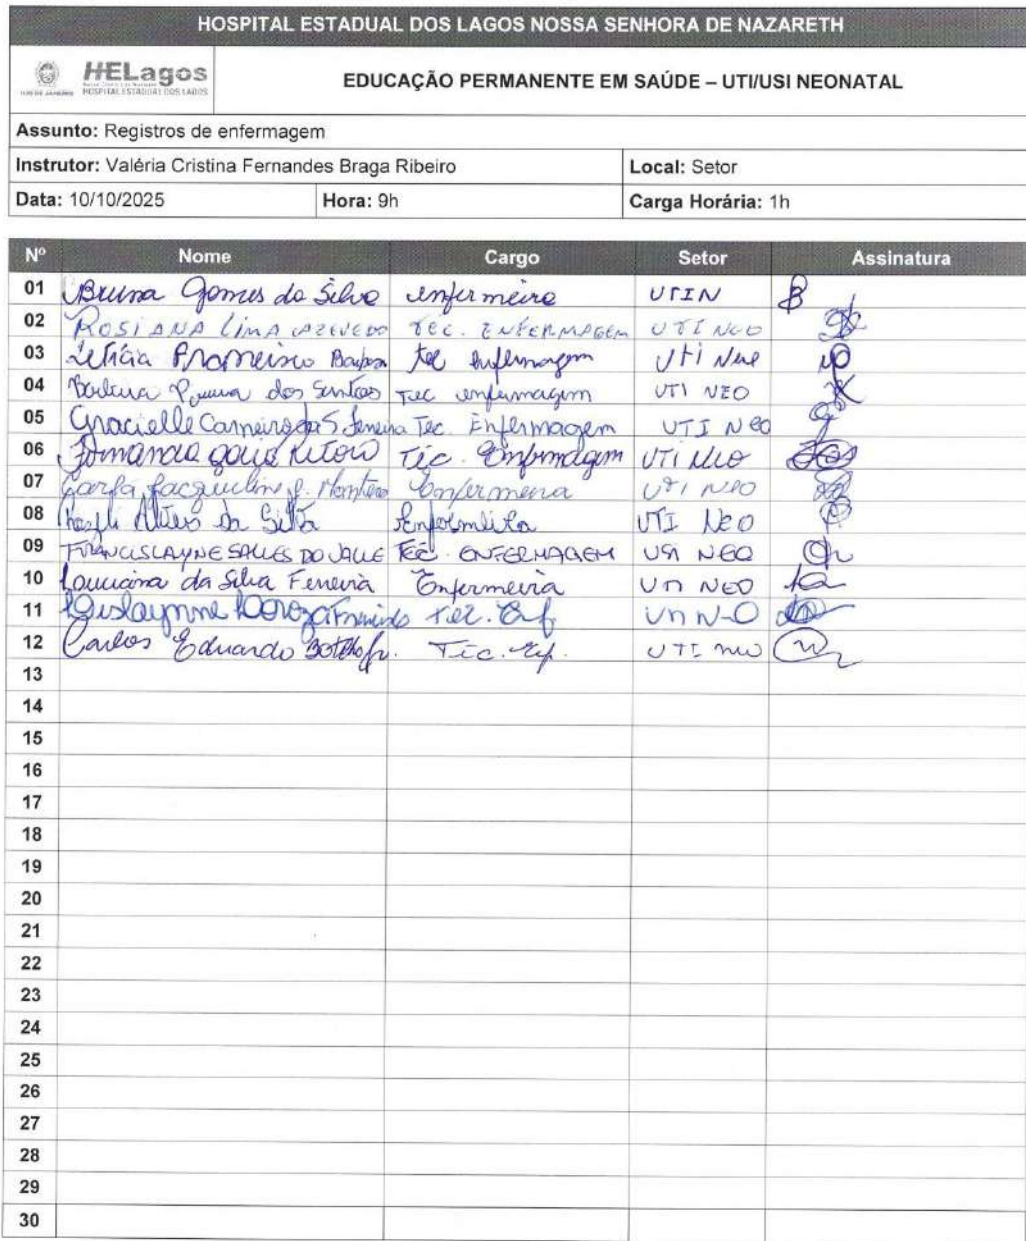 HOSPITAL ESTADUAL DOS LAGOS NOSSA SENHORA DE NAZARETH
HELagos
HOSPITAL ESTADUAL DOS LAGOS
EDUCAÇÃO PERMANENTE EM SAÚDE – UTI/USI NEONATAL
Assunto: Registros de enfermagem
Instrutor: Valéria Cristina Fernandes Braga Ribeiro Local: Setor
Data: 10/10/2025 Hora: 9h Carga Horária: 1h
Nº Nome Cargo Setor Assinatura
01 Bruna Gomes da Silva enfermeira UTIN
02 ROSIANA LIMA AZEVEDO TEC. ENFERMAGEM UTI NEO
03 Letícia Francisco tec enfermagem UTI Neo
04 dos Santos Tec enfermagem UTI NEO
05 Gracielle Carneiro da S. Ferreira Tec. Enfermagem UTI Neo
06 Téc. Enfermagem UTI Neo
07 Jacqueline Enfermeira UTI NEO
08 da Silva Enfermeira UTI Neo
09 FRANCISLAYNE SALLES DO VALLE TEC. ENFERMAGEM USI NEO
10 da Silva Ferreira Enfermeira UTI NEO
11 Tec. Enf
12 Carlos Eduardo Botelho Jr. Téc. Enf. UTI neo
13
14
15
16
17
18
19
20
21
22
23
24
25
26
27
28
29
30